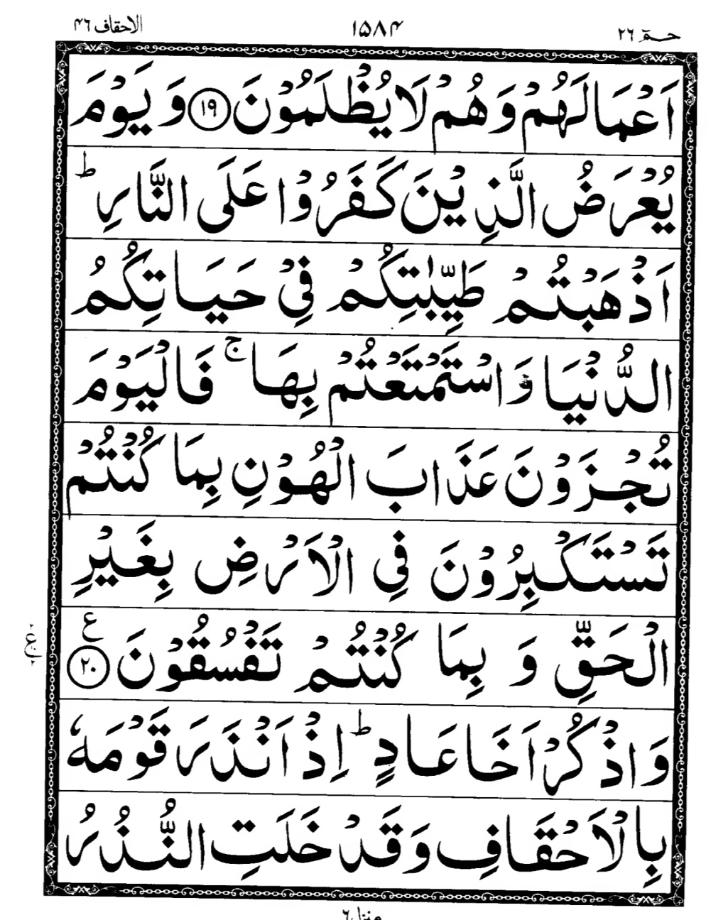 حٰمٓ ٢٦
١٥٨٤
الاحقاف ٤٦
اَعْمَالَهُمْ وَهُمْ لَا يُظْلَمُوْنَ ﴿١٩﴾ وَ يَوْمَ
يُعْرَضُ الَّذِيْنَ كَفَرُوْا عَلَى النَّارِ ؕ
اَذْهَبْتُمْ طَيِّبٰتِكُمْ فِيْ حَيَاتِكُمُ
الدُّنْيَا وَاسْتَمْتَعْتُمْ بِهَا ۚ فَالْيَوْمَ
تُجْزَوْنَ عَذَابَ الْهُوْنِ بِمَا كُنْتُمْ
تَسْتَكْبِرُوْنَ فِي الْاَرْضِ بِغَيْرِ
الْحَقِّ وَ بِمَا كُنْتُمْ تَفْسُقُوْنَ ﴿٢٠﴾ ع
وَاذْكُرْ اَخَا عَادٍ ؕ اِذْ اَنْذَرَ قَوْمَهٗ
بِالْاَحْقَافِ وَقَدْ خَلَتِ النُّذُرُ
منزل ٦